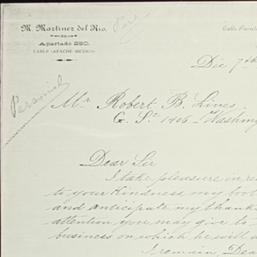 M. Martinez del Rio.
Calle Puente
Apartado 220.
CABLE "APACHE" MEXICO
Dic 7th
Personal
Mr Robert B. Lines
G. St 1406 Washing
Dear Sir
I take pleasure in re
to your kindness my bro
and anticipate my thank
attention you may give to
business on which he will
I remain Dear